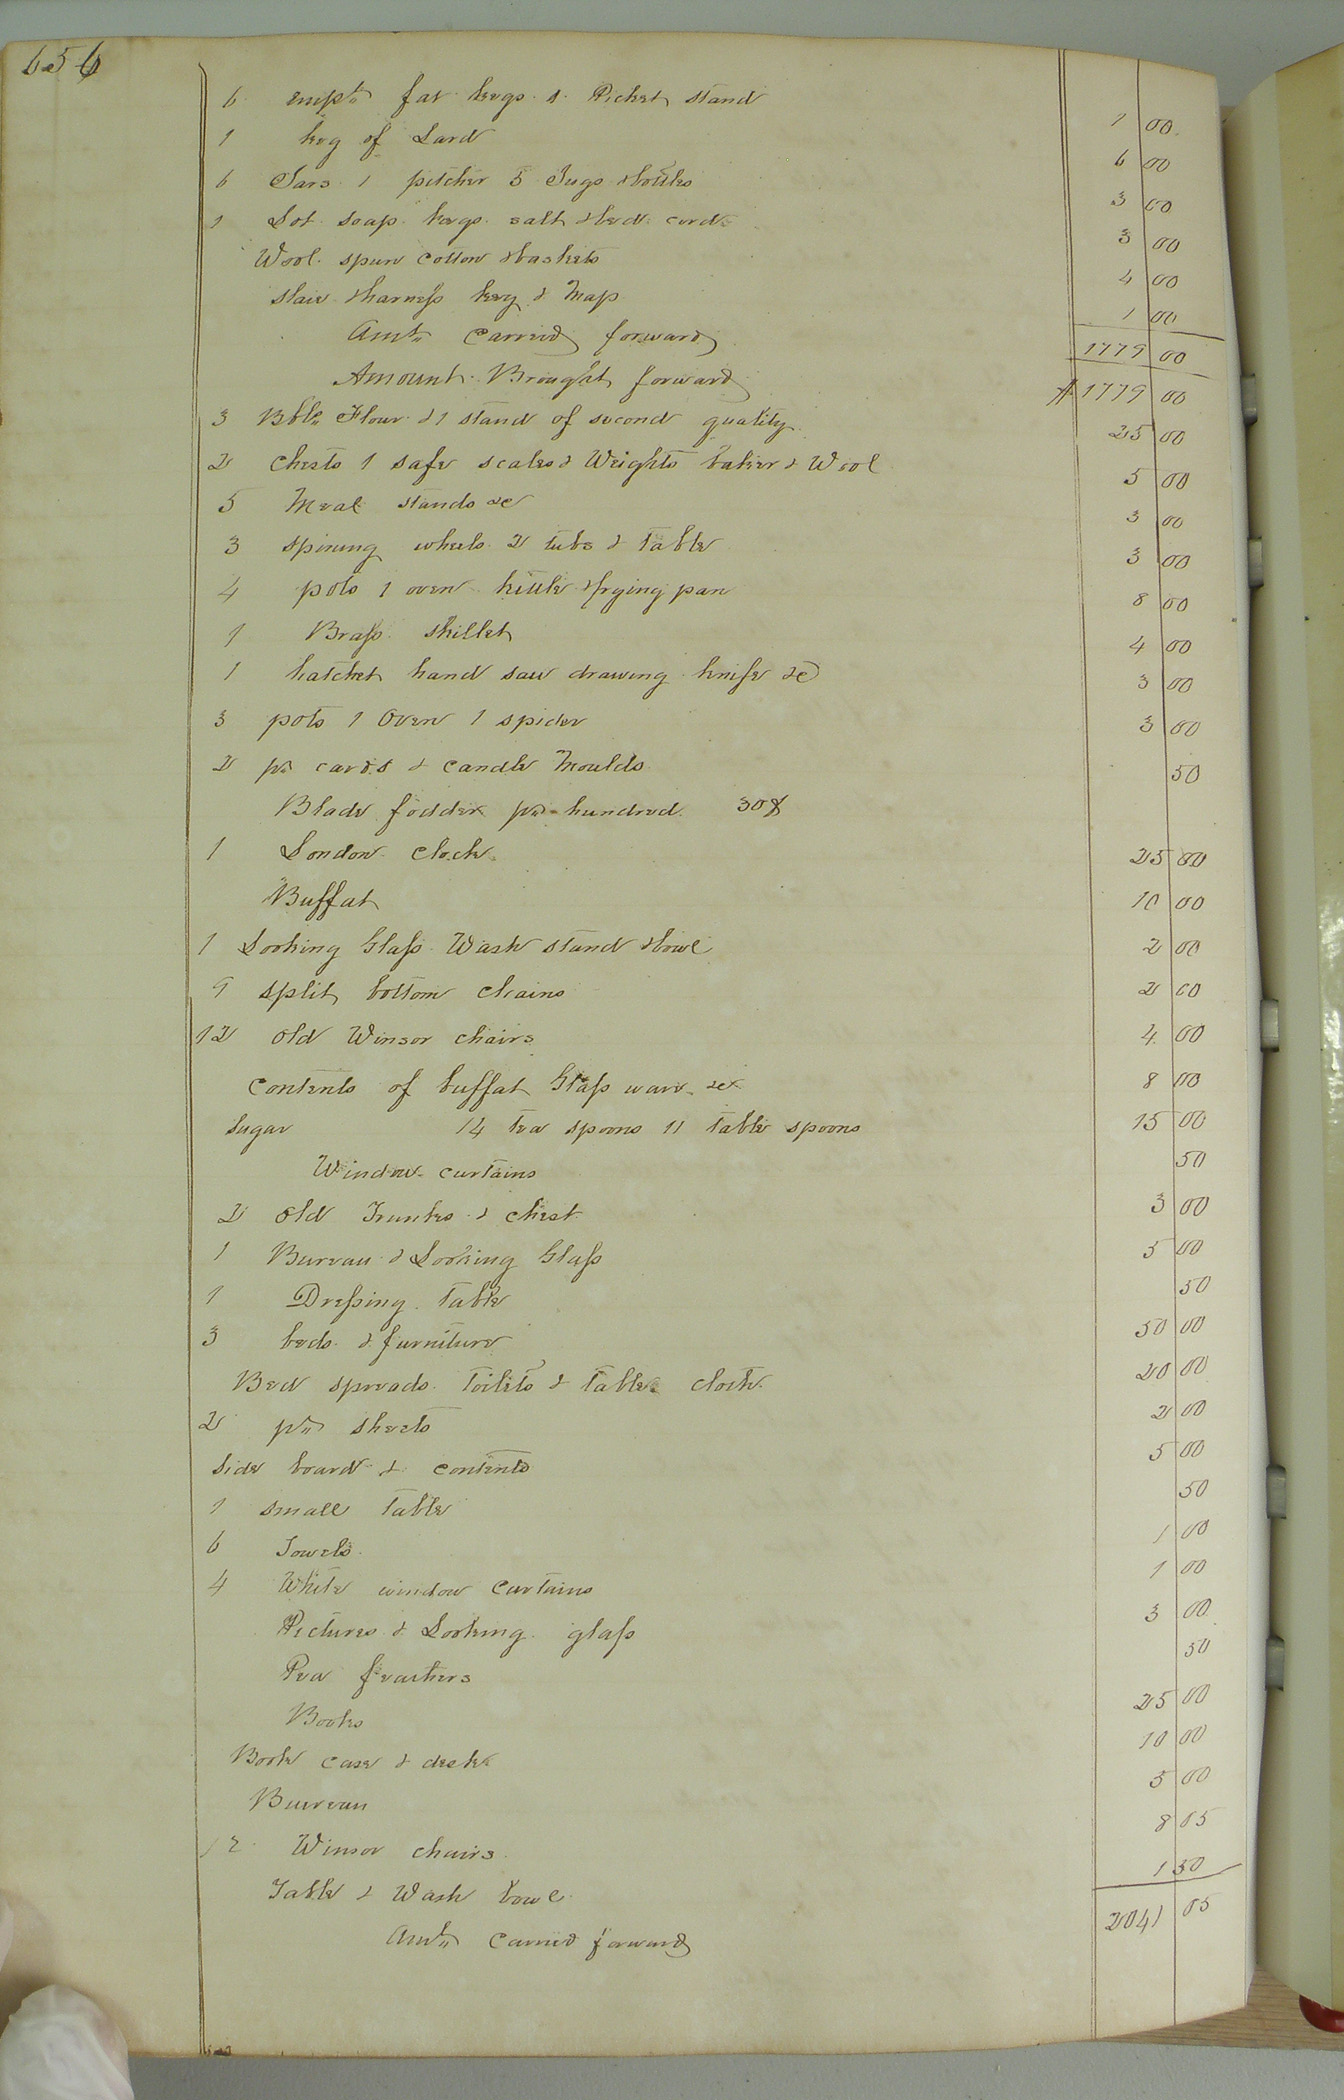 656
6 empty fat kegs & Picket stand 1 00
1 keg of Lard 6 00
6 Jars 1 pitcher 5 Jugs & bottles 3 00
1 Lot soap kegs salt & bed cords 3 00
Wool spun cotton & baskets 4 00
Slaie & harness keg & Map 1 00
Amt. Carried forward 1779 00
Amount Brought forward $1779 00
3 Bbls Flour & 1 stand of second quality 25 00
2 Chests 1 safe scales & Weights & Wool 5 00
5 Meal stands &c 3 00
3 spining wheels 2 tubs & table 3 00
4 pots 1 oven kittle & frying pan 8 00
1 Brass skillet 4 00
1 hatchet hand saw drawing knife &c 3 00
3 pots 1 Oven 1 spider 3 00
2 pr cards & candle Moulds 50
Blade fodder pr hundred 30¢
1 London Clock 25 00
Buffat 10 00
1 Looking Glass Wash stand & bowl 2 00
9 split bottom chairs 2 00
12 old Winsor chairs 4 00
Contents of buffat Glass ware &c 8 00
Sugar 14 tea spoons 11 table spoons 15 00
Window curtains 50
2 old Trunks & chest 3 00
1 Bureau & Looking Glass 5 00
1 Dressing table 50
3 beds & furniture 50 00
Bed spreads toilets & table cloth 20 00
2 pr sheets 2 00
Side board & contents 5 00
1 small table 50
6 Towels 1 00
4 White window Curtains 1 00
Pictures & Looking glass 3 00
Pea feathers 50
Books 25 00
Book case & desk 10 00
Buureau 5 00
12 Winsor chairs 8 05
Table & Wash bowl 1 50
Amt. Carried forward 2041 05